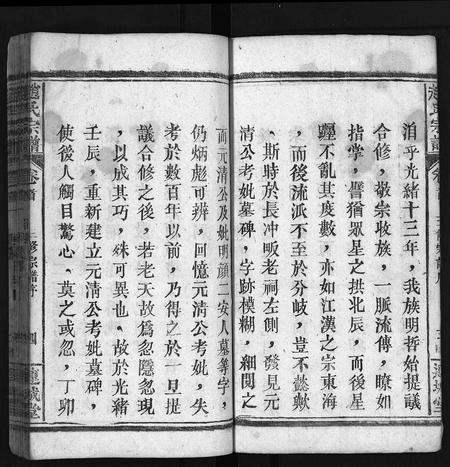 洎乎光緒十三年，我族明哲始提議
合修，敬宗收族，一脈流傳，瞭如
指掌，譬猶眾星之拱北辰，而後星
躔不亂其度數，亦如江漢之宗東海
，而後流派不至於分岐，豈不懿歟
、斯時於長冲畈老祠左側，發見元
清公考妣墓碑，字跡模糊，細閱之
而元清公及妣明顔二安人墓等字，
仍炳彪可辨，回憶元清公考妣，失
考於數百年以前，乃得之於一旦提
議合修之後，若老天故爲忽隱忽現
，以成其巧，殊可異也。故於光緒
壬辰，重新建立元清公考妣墓碑，
使後人觸目驚心、莫之或忽，丁卯
趙氏宗譜
卷首
修宗譜序
四